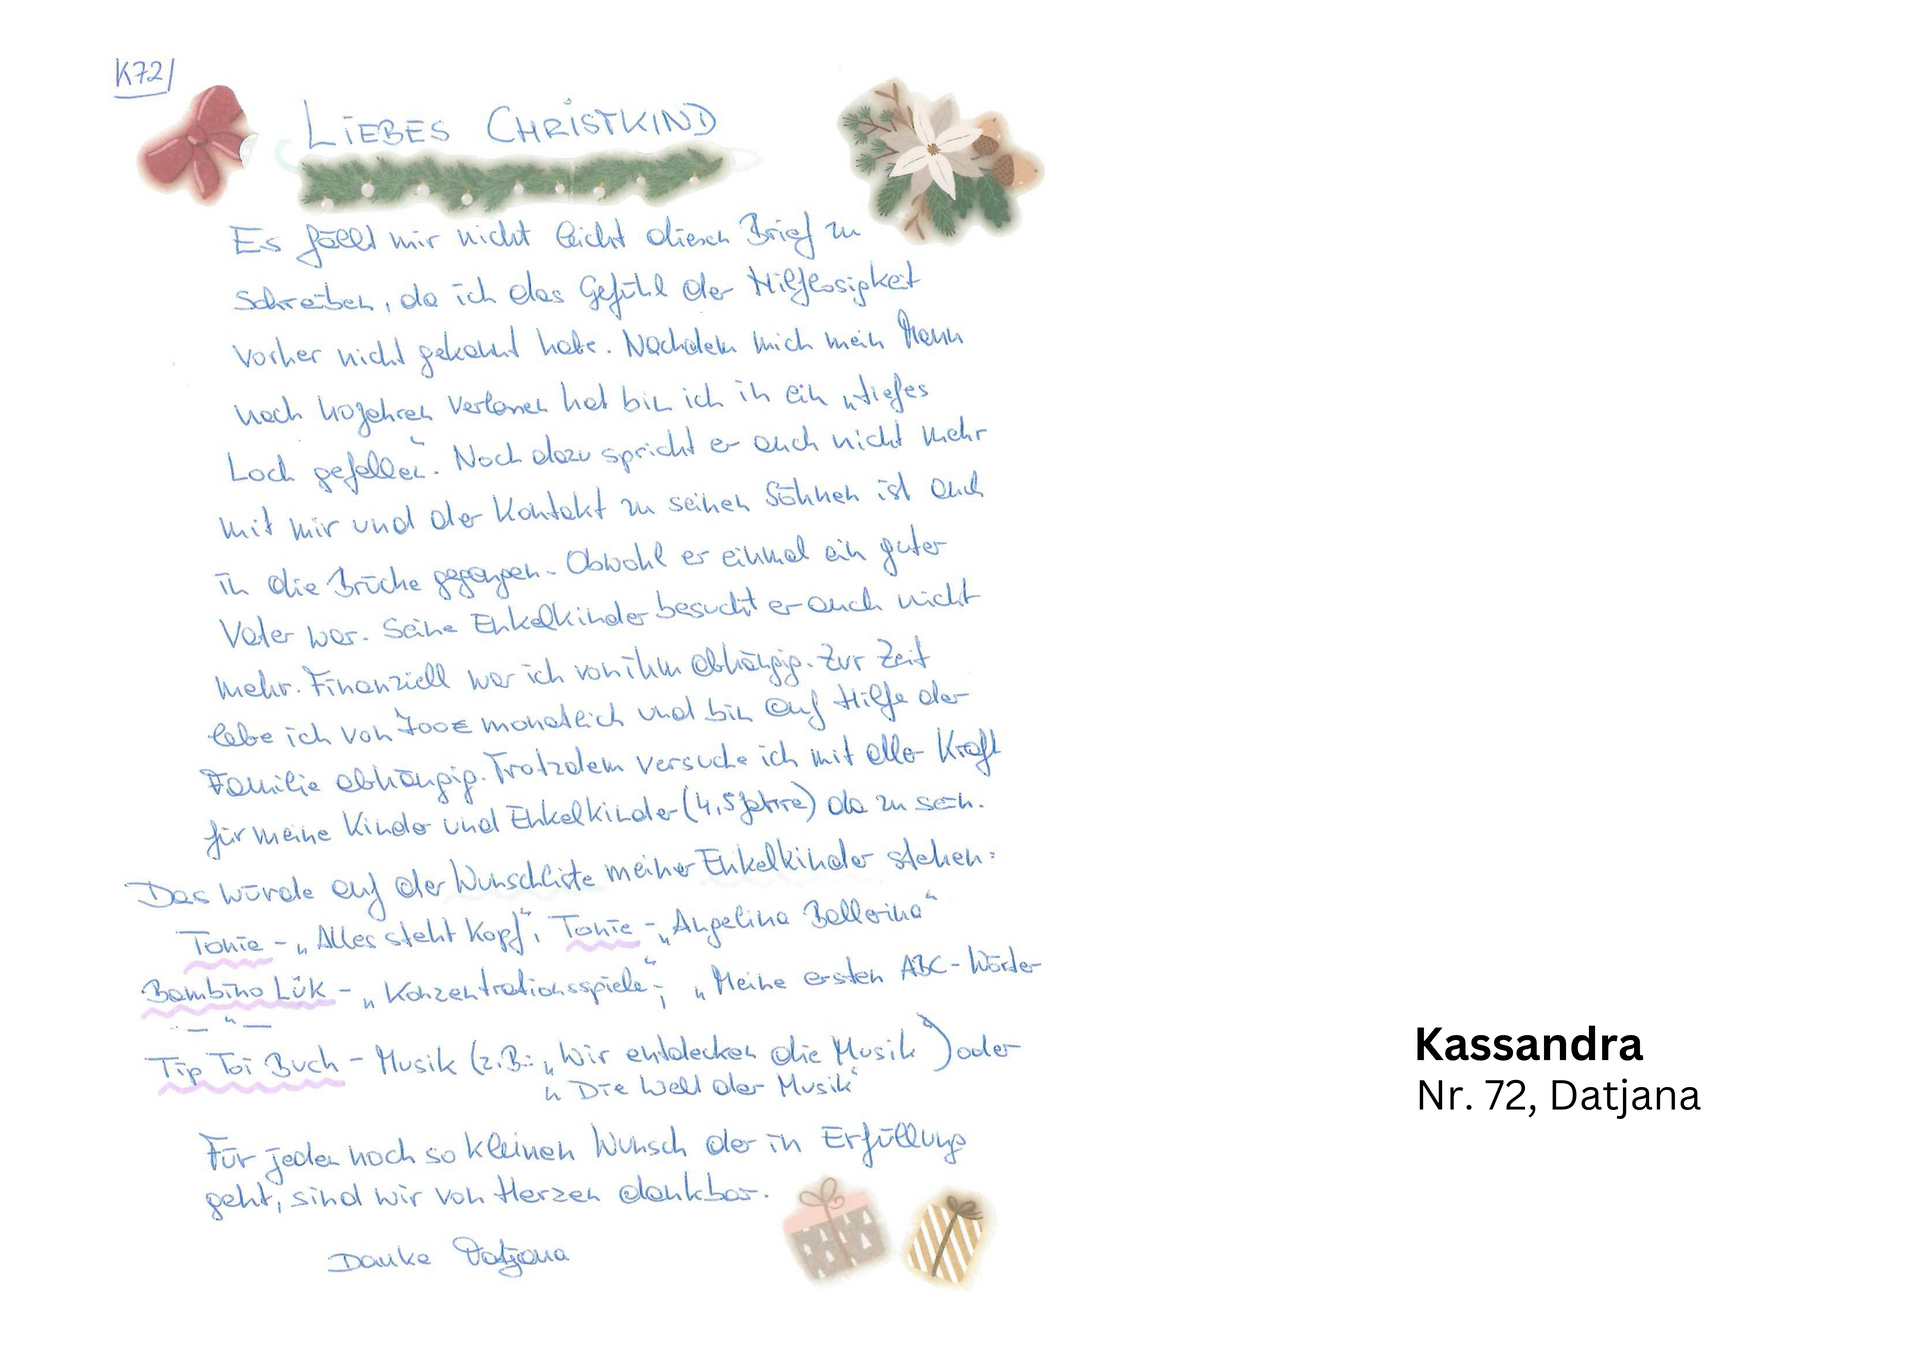 K72/
LIEBES CHRISTKIND
Es fällt mir nicht leicht diesen Brief zu
schreiben, da ich das Gefühl der Hilflosigkeit
vorher nicht gekannt habe. Nachdem mich mein Mann
nach 40 Jahren verlassen hat bin ich in ein „tiefes
Loch gefallen“. Noch dazu spricht er auch nicht mehr
mit mir und der Kontakt zu seinen Söhnen ist auch
in die Brüche gegangen. Obwohl er einmal ein guter
Vater war. Seine Enkelkinder besucht er auch nicht
mehr. Finanziell war ich von ihm abhängig. Zur Zeit
lebe ich von 700€ monatlich und bin auf Hilfe der
Familie abhängig. Trotzdem versuche ich mit aller Kraft
für meine Kinder und Enkelkinder (4,5 Jahre) da zu sein.
Das würde auf der Wunschliste meiner Enkelkinder stehen:
Tonie - „Alles steht Kopf“, Tonie - „Angelina Ballerina“
Bambino Lük - „Konzentrationsspiele“; „Meine ersten ABC-Wörter
— “ —
Tip Toi Buch - Musik (z.B.: „Wir entdecken die Musik“) oder
„Die Welt der Musik“
Für jeden noch so kleinen Wunsch der in Erfüllung
geht, sind wir von Herzen dankbar.
Danke Datjana
Kassandra
Nr. 72, Datjana